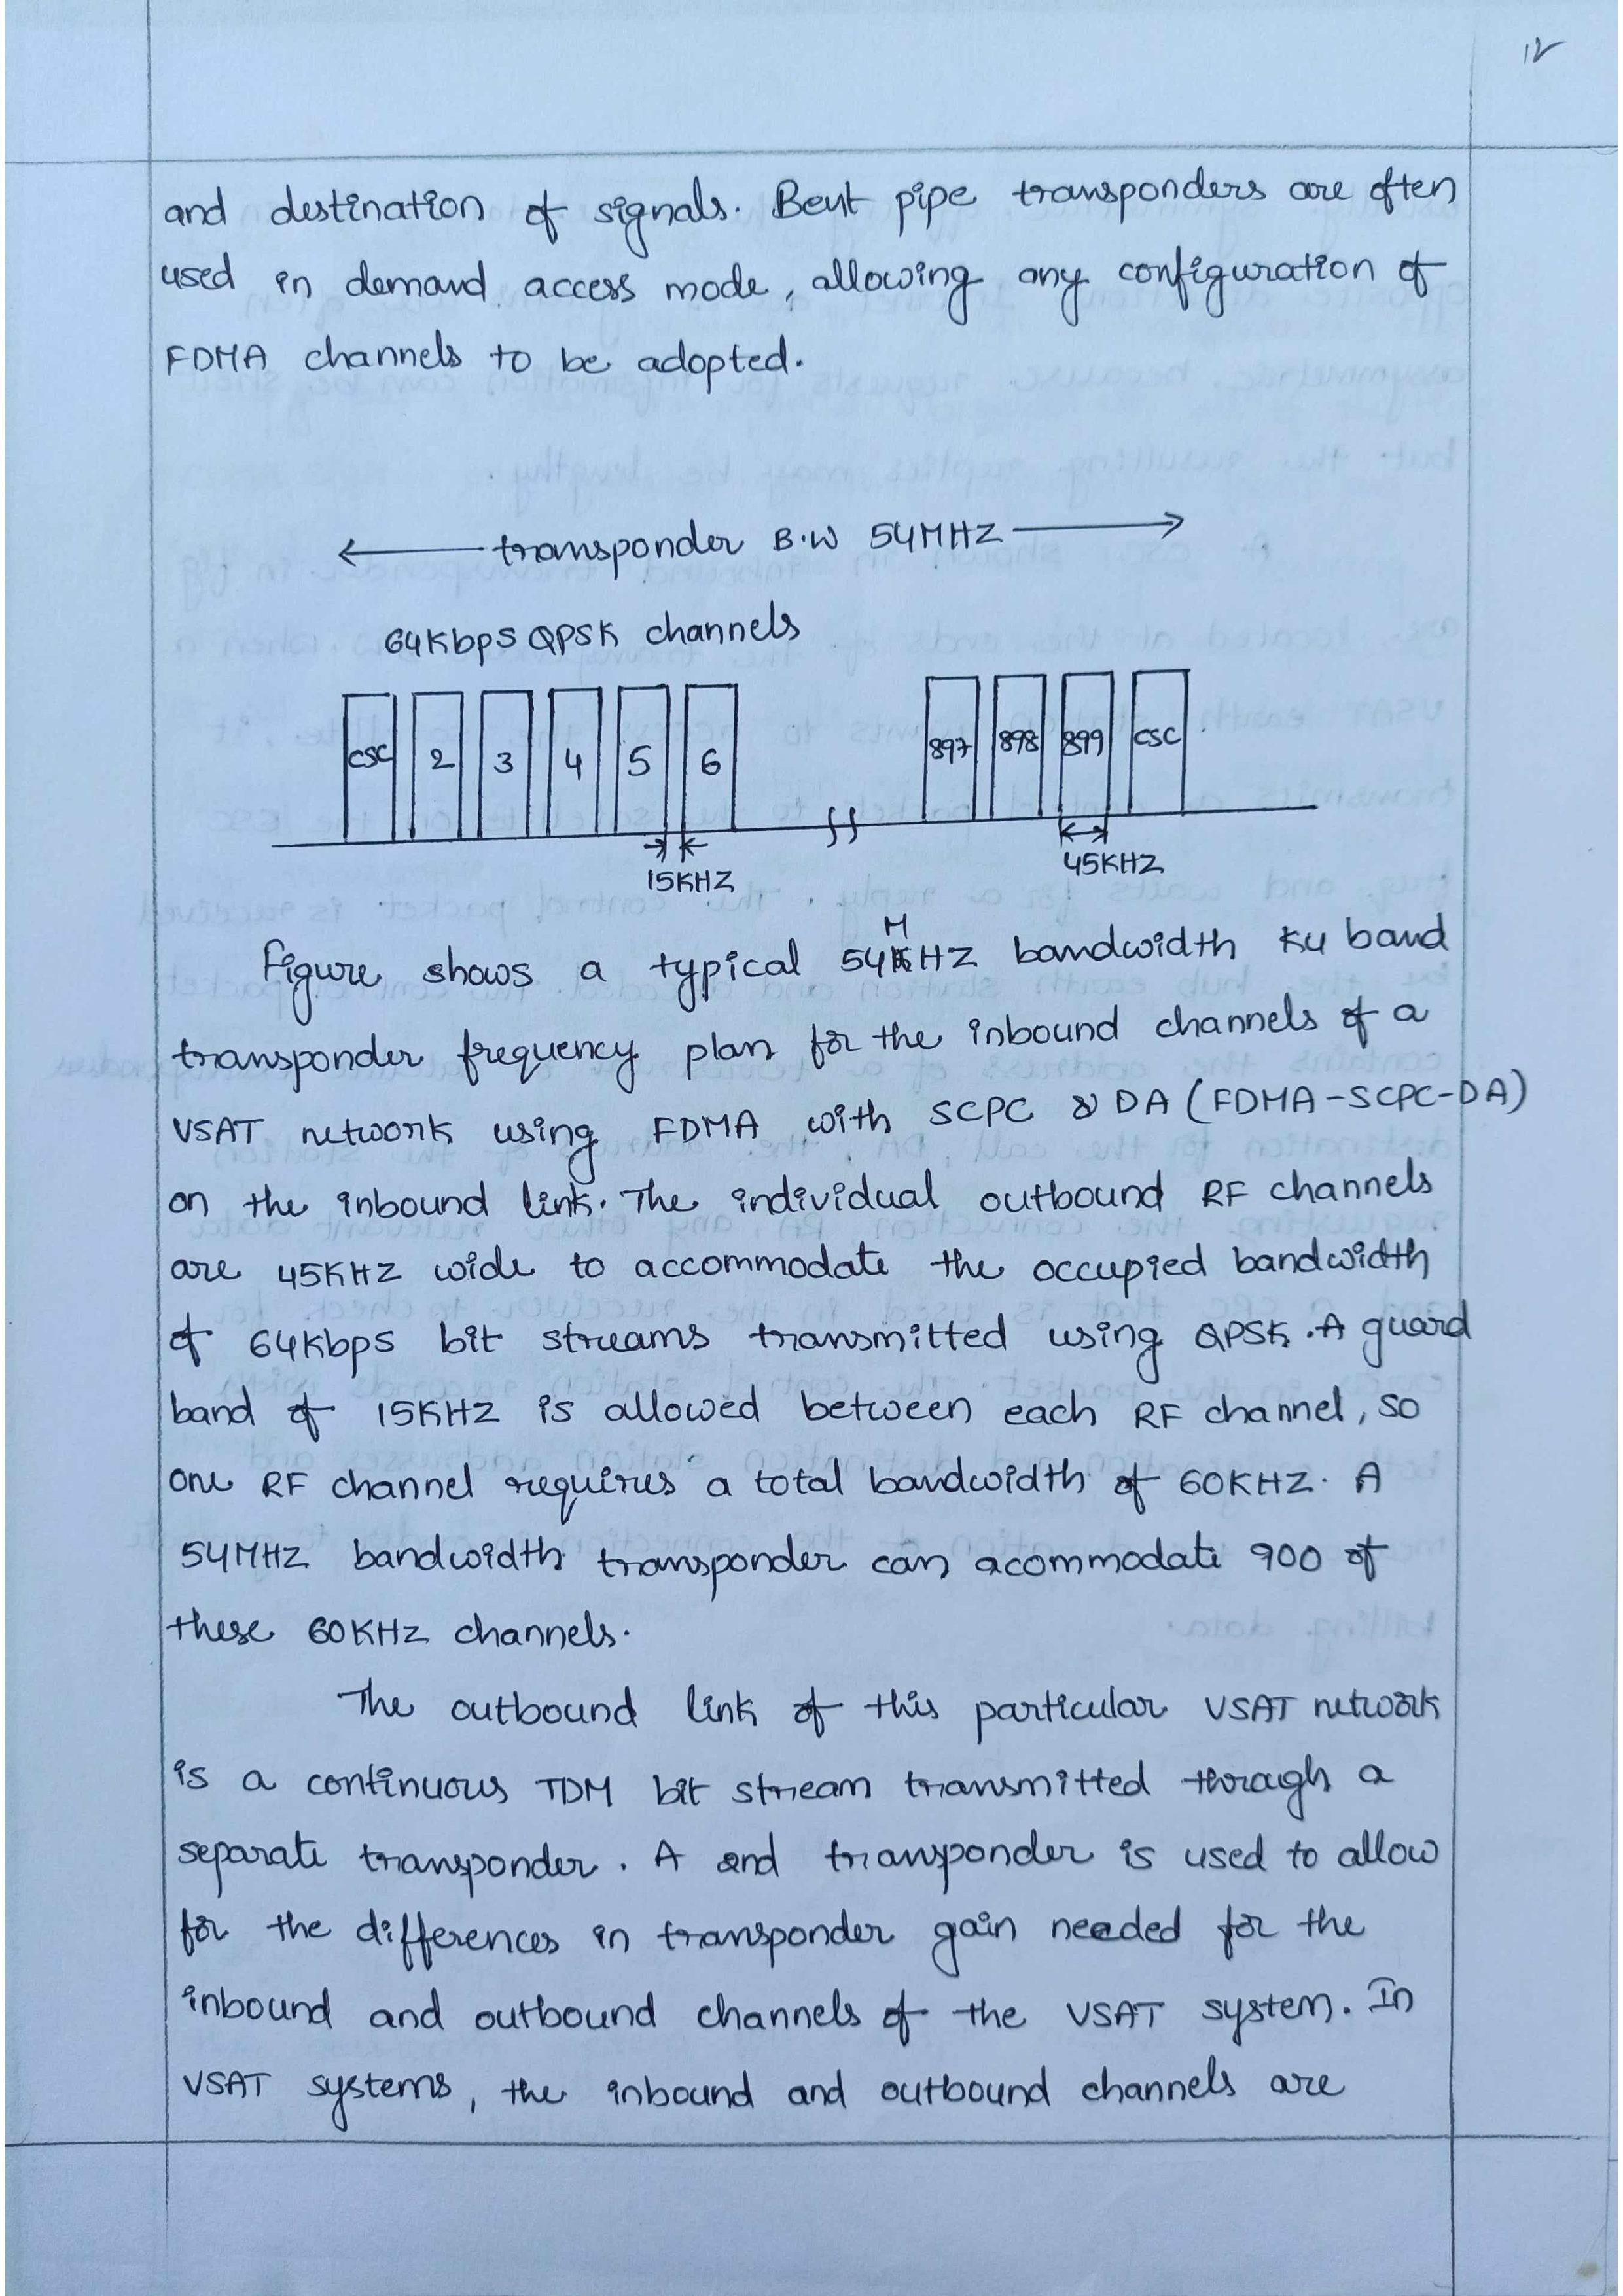 12
and destination of signals. Bent pipe transponders are often
used in demand access mode, allowing any configuration of
FDMA channels to be adopted.
transponder B.W 54MHZ
64Kbps QPSK channels
CSC 2 3 4 5 6 897 898 899 CSC
15KHZ 45KHZ
M
Figure shows a typical 54KHZ bandwidth Ku band
transponder frequency plan for the inbound channels of a
VSAT network using FDMA with SCPC & DA (FDMA-SCPC-DA)
on the inbound link. The individual outbound RF channels
are 45KHZ wide to accommodate the occupied bandwidth
of 64Kbps bit streams transmitted using QPSK. A guard
band of 15KHZ is allowed between each RF channel, so
one RF channel requires a total bandwidth of 60KHZ. A
54MHZ bandwidth transponder can acommodate 900 of
these 60KHZ channels.
The outbound link of this particular VSAT network
is a continuous TDM bit stream transmitted through a
separate transponder. A 2nd transponder is used to allow
for the differences in transponder gain needed for the
inbound and outbound channels of the VSAT system. In
VSAT systems, the inbound and outbound channels are